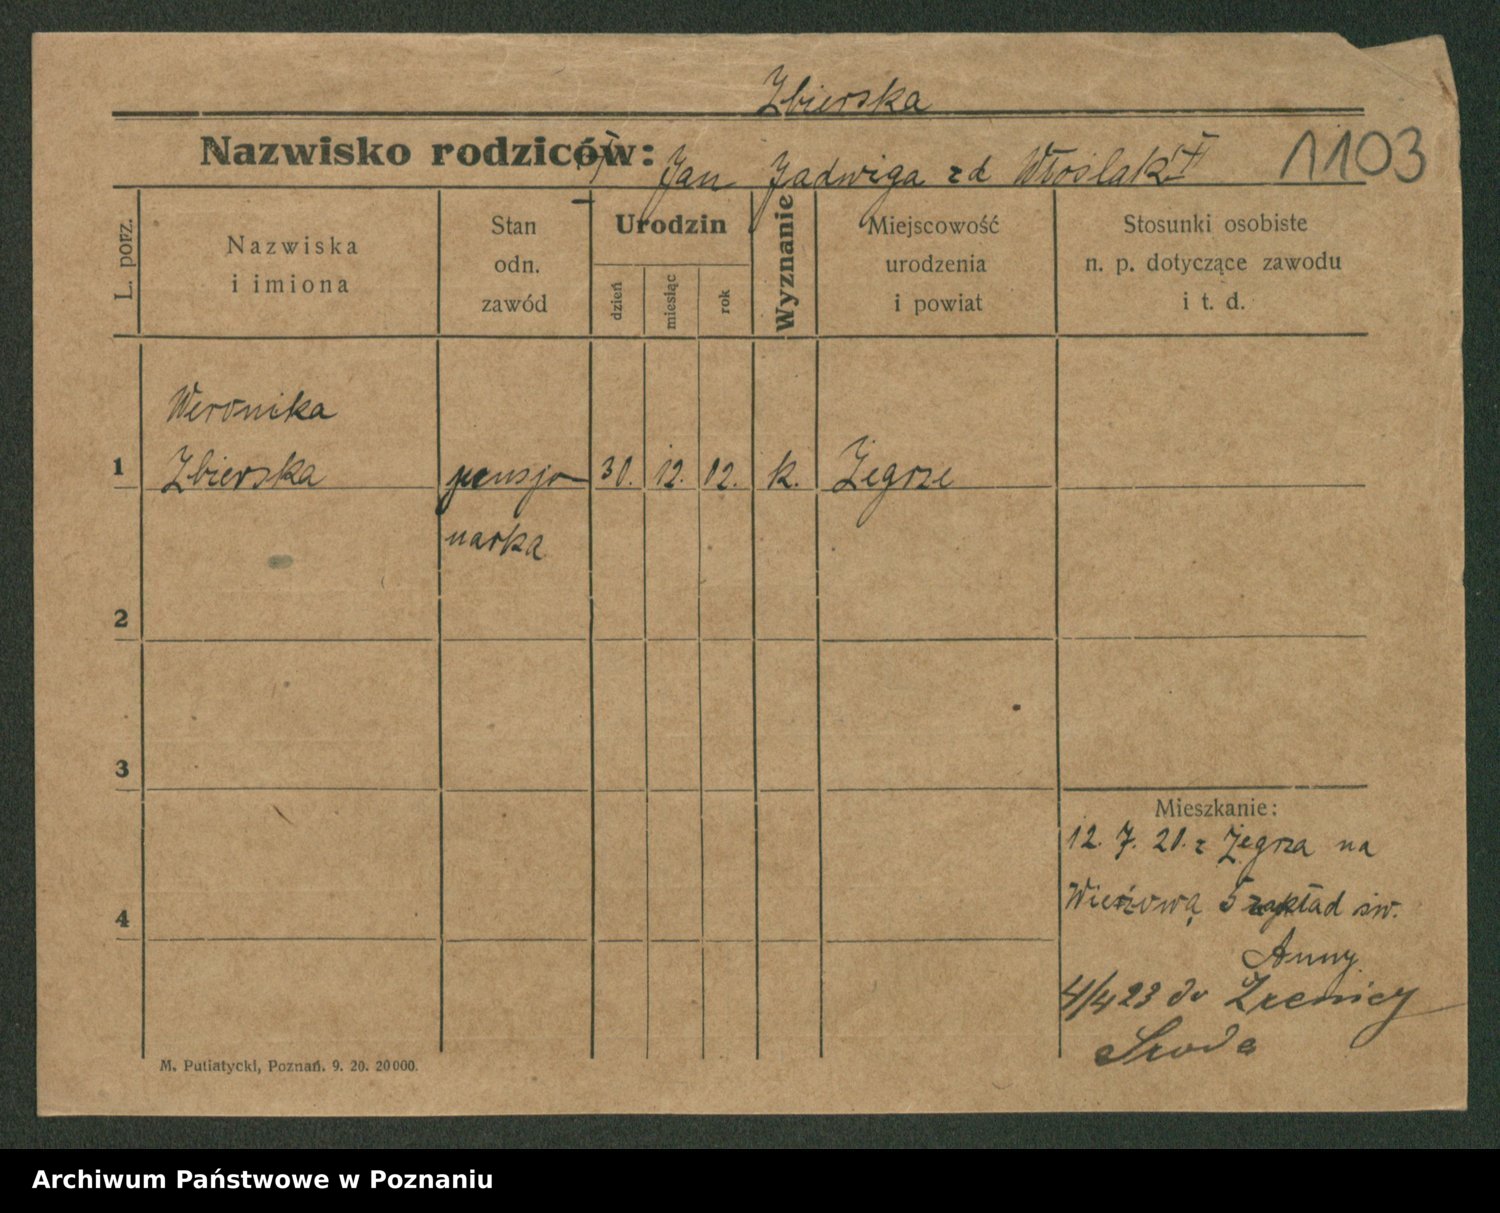 Zbierska
Nazwisko rodziców: Jan Jadwiga zd Włoślak
1103
L. porz.
Nazwiska
i imiona
Stan
odn.
zawód
Urodzin
dzień
miesiąc
rok
Wyznanie
Miejscowość
urodzenia
i powiat
Stosunki osobiste
n. p. dotyczące zawodu
i t. d.
Weronika
1 Zbierska pensjo 30. 12. 02. k. Żegrze
narka
2
3
Mieszkanie:
12. 7. 21. z Żegrza na
Wieżową 5 zakład św.
4
Anny
4/4 23 do Zrenicy
Sroda
M. Putiatycki, Poznań. 9. 20. 20000.
Archiwum Państwowe w Poznaniu